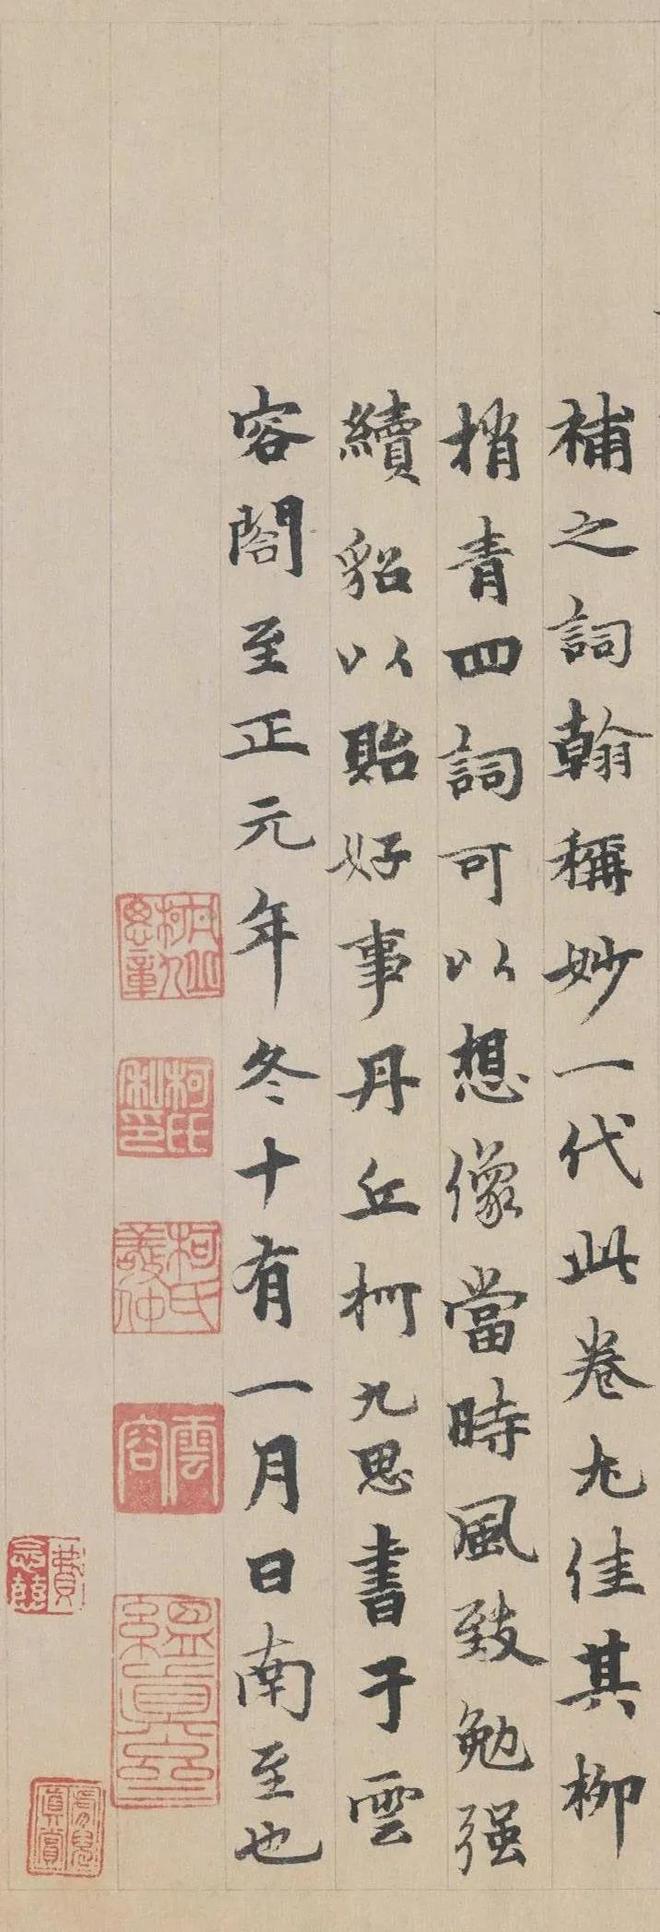 補之詞翰稱妙一代此卷尤佳其柳
梢青四詞可以想像當時風致勉强
續貂以貽好事丹丘柯九思書于雲
容閣至正元年冬十有一月日南至也
柯氏私印
柯氏敬仲
雲容
緼真齋